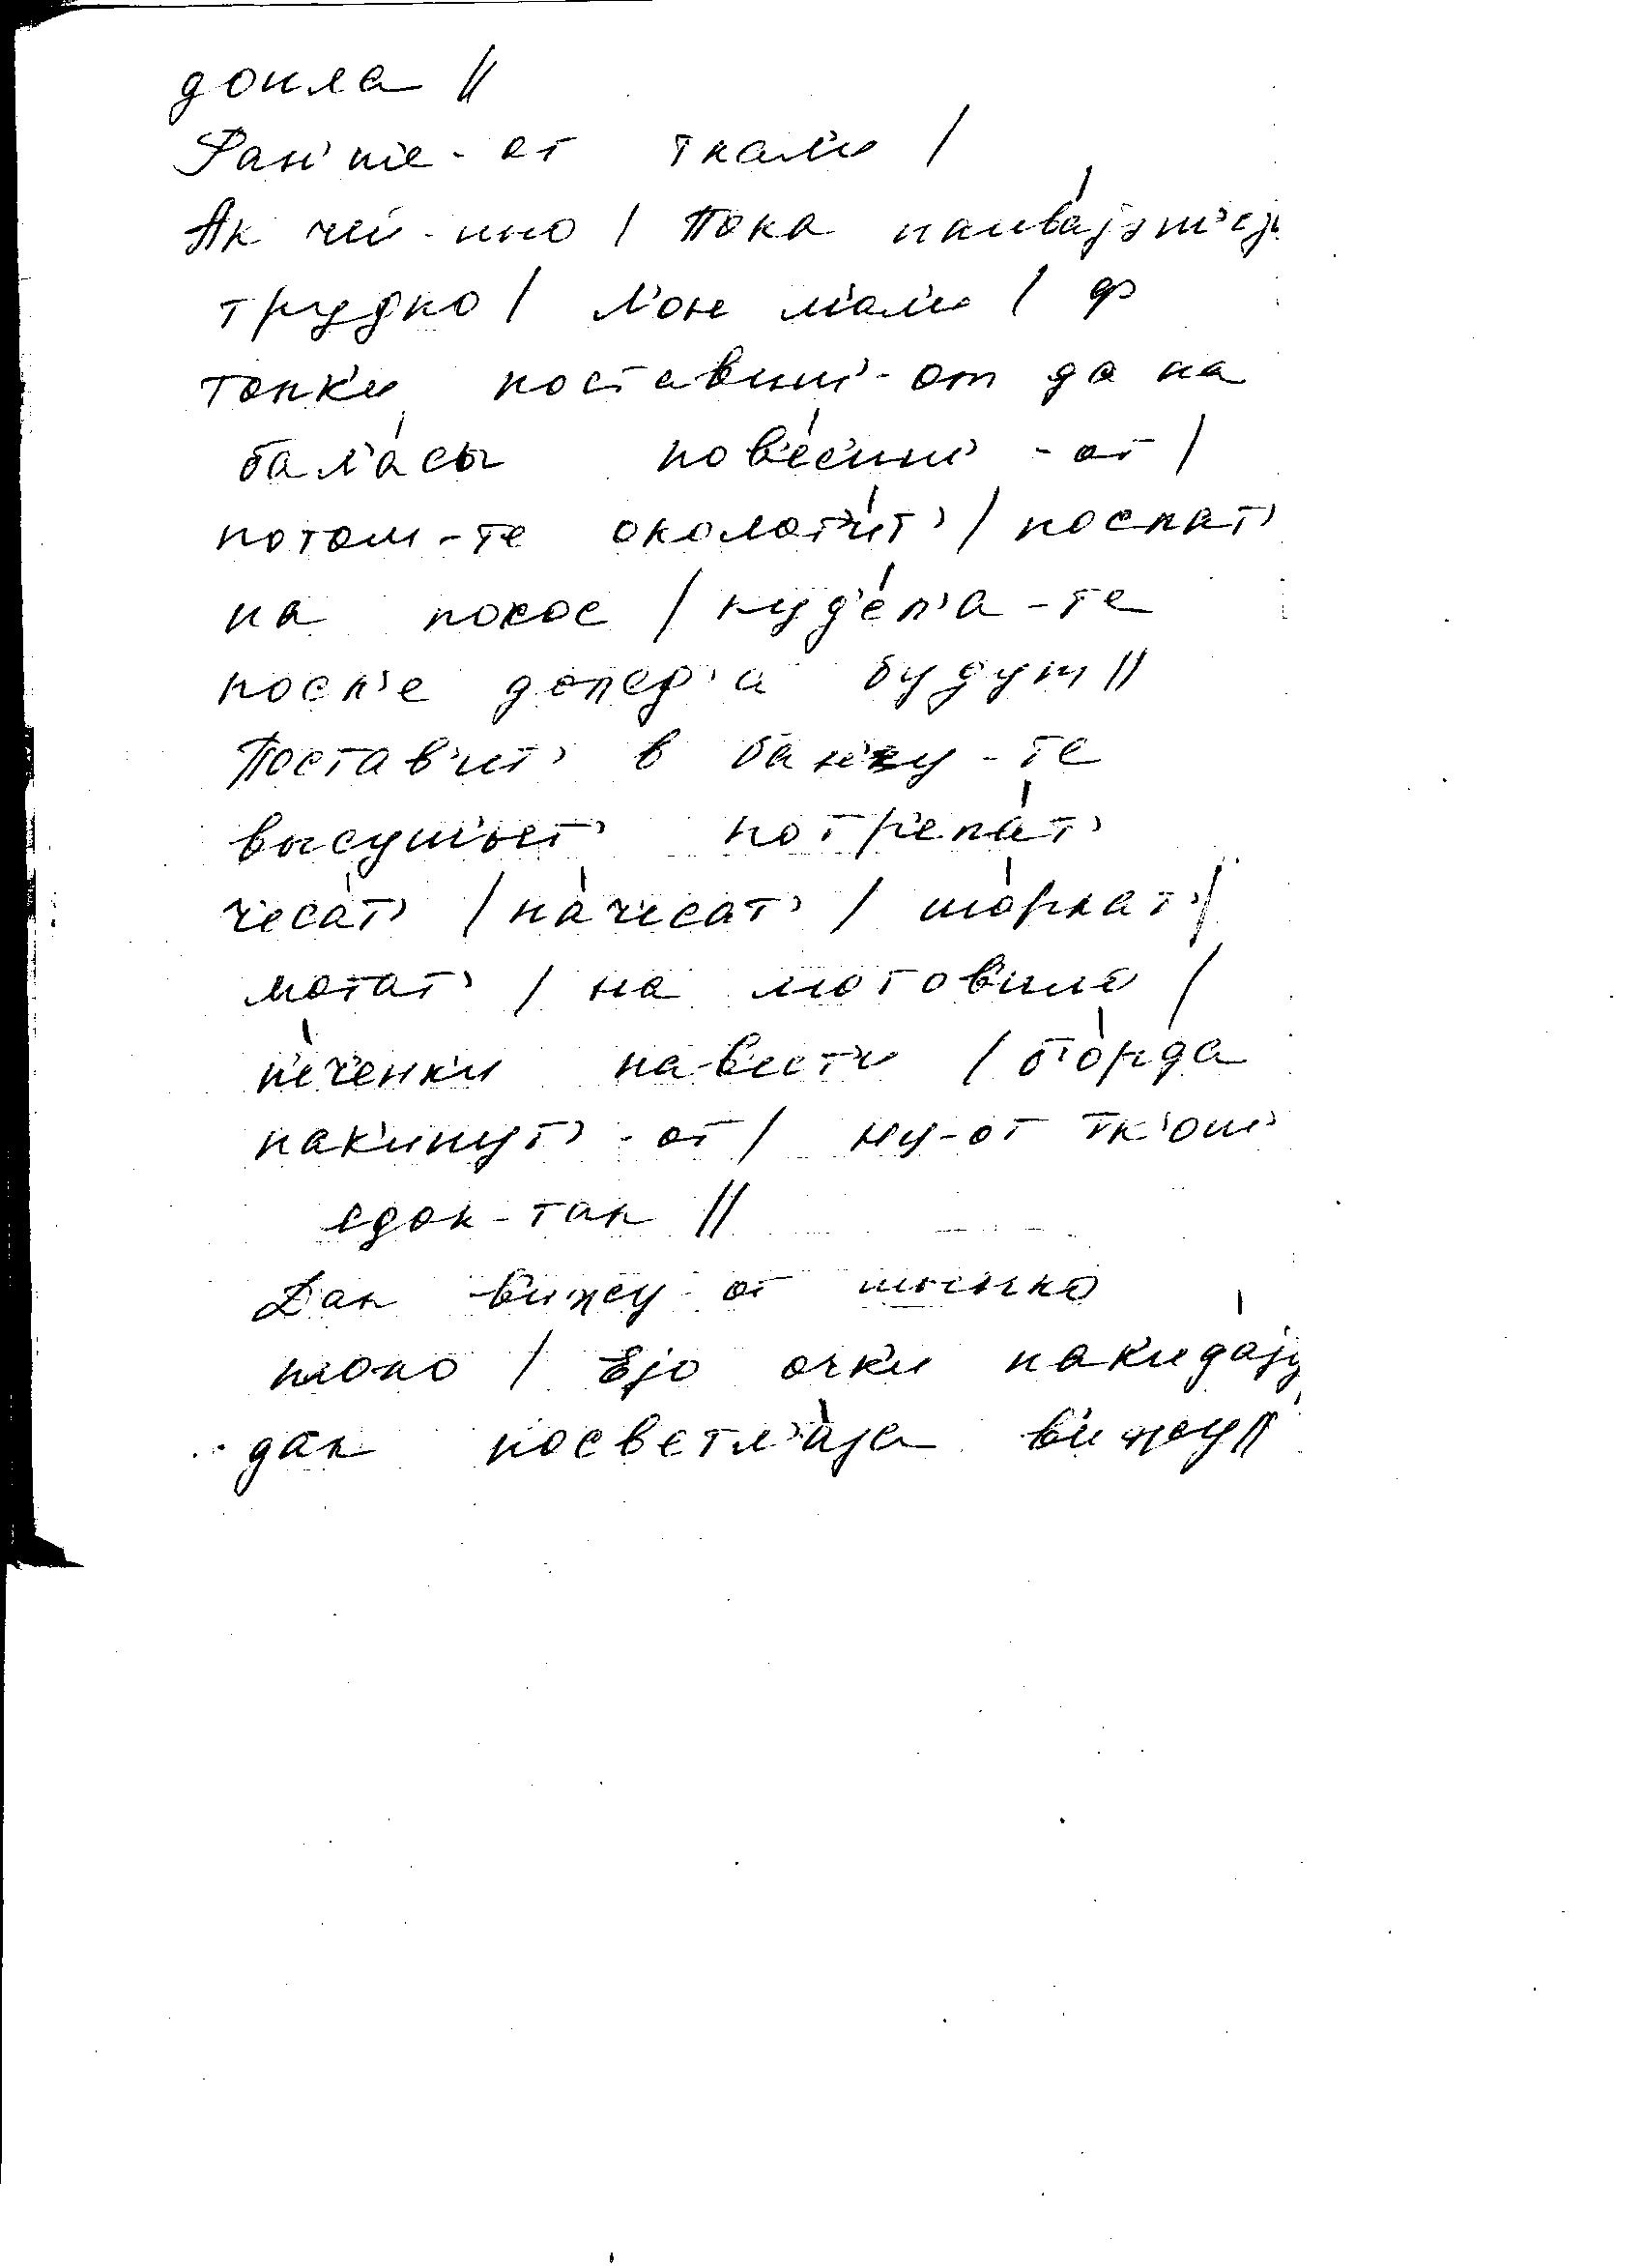 доила //
Ран'ше-от ткали /
Ак чей-ино / Пока
трудно / л'он м'али / ф
топк'и поставиш'-от да на
бал'а́сы пов'е́сиш'-от /
потом-те околот'и́т' / послат'
на покос / куд'е́л'а-те
посл'е допер'а будут //
Постав'ит' в бан'ку-те
высуш'ыт' потр'епа́т'
ч'еса́т' / на́ч'есат' / шо́ркат' /
мотат' / на мотовило /
п'е́ч'енк'и на-вести / б'о́рда
нак'инут'-от / ну-от тк'ош'
едак-так //
Дак вижу-от
плохо / Ејо очк'и
дак посветл'а́ја вижу //